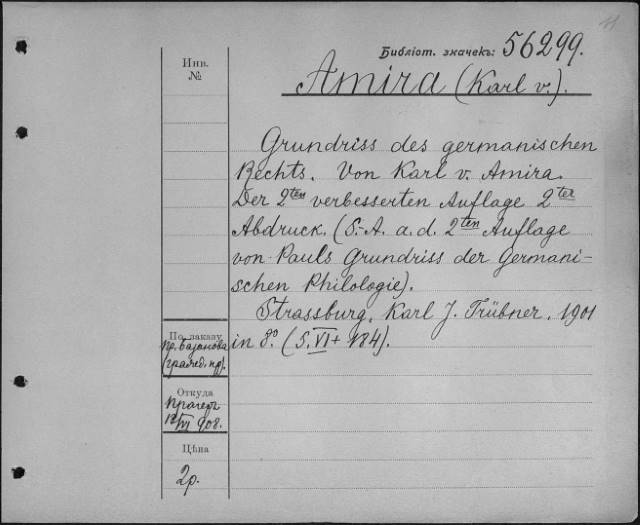 11
Библіот. значекъ: 56299.
Инв.
№
Amira (Karl v.).
Grundriss des germanischen
Rechts. Von Karl v. Amira.
Der 2ten verbesserten Auflage 2ter
Abdruck. (S.-A. a. d. 2ten Auflage
von Pauls Grundriss der Germani-
schen Philologie).
Strassburg. Karl J. Trübner. 1901
in 8º. (S. VI + 184).
По заказу
пр. Базанова
Откуда
908.
Цѣна
2р.